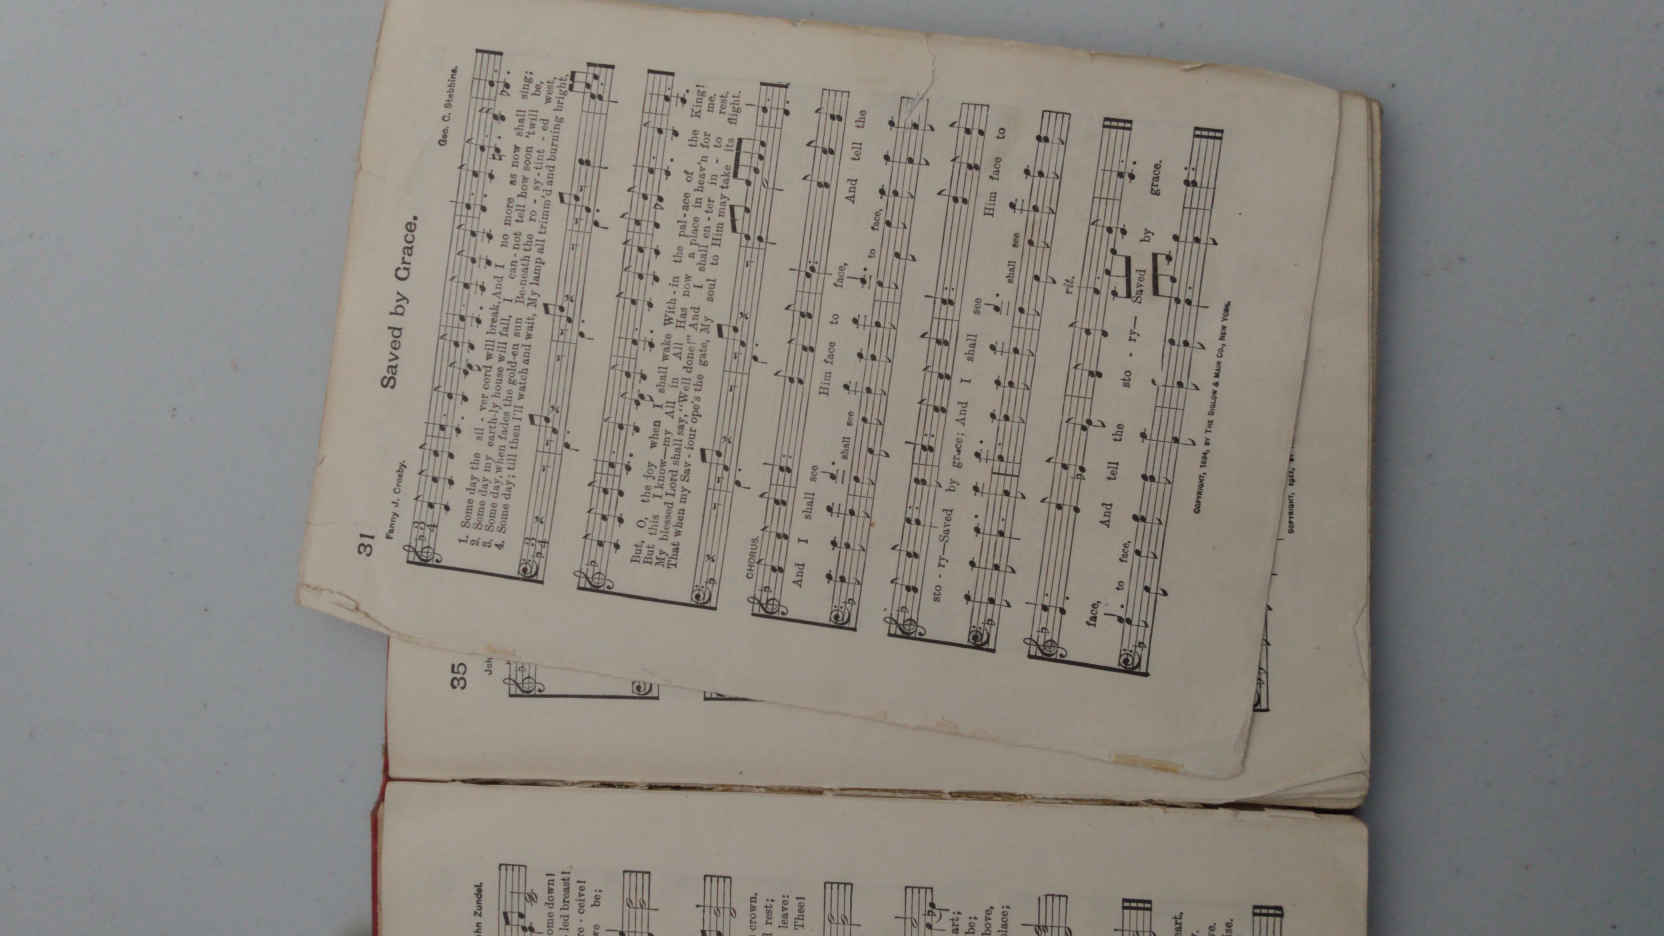 31
Saved by Grace.
Fanny J. Crosby.
Geo. C. Stebbins.
1. Some day the sil - ver cord will break, And I no more as now shall sing;
2. Some day my earth-ly house will fall, I can - not tell how soon 'twill be,
3. Some day, when fades the gold-en sun Be-neath the ro - sy-tint - ed west,
4. Some day; till then I'll watch and wait, My lamp all trimm'd and burning bright,
But, O, the joy when I shall wake With - in the pal - ace of the King!
But this I know—my All in All Has now a place in heav'n for me.
My blessed Lord shall say, "Well done!" And I shall en - ter in - to rest.
That when my Sav - iour ope's the gate, My soul to Him may take its flight.
CHORUS.
And I shall see Him face to face, And tell the
shall see to face,
sto - ry—Saved by grace; And I shall see Him face to
shall see
rit.
face, And tell the sto - ry— Saved by grace.
to face,
COPYRIGHT, 1894, BY THE BIGLOW & MAIN CO., NEW YORK.
35
Joh
COPYRIGHT,
hn Zundel.
ome down!
led breast!
re - ceive!
be;
crown,
rest;
leave:
Thee!
art;
be;
bove,
place;
eart,